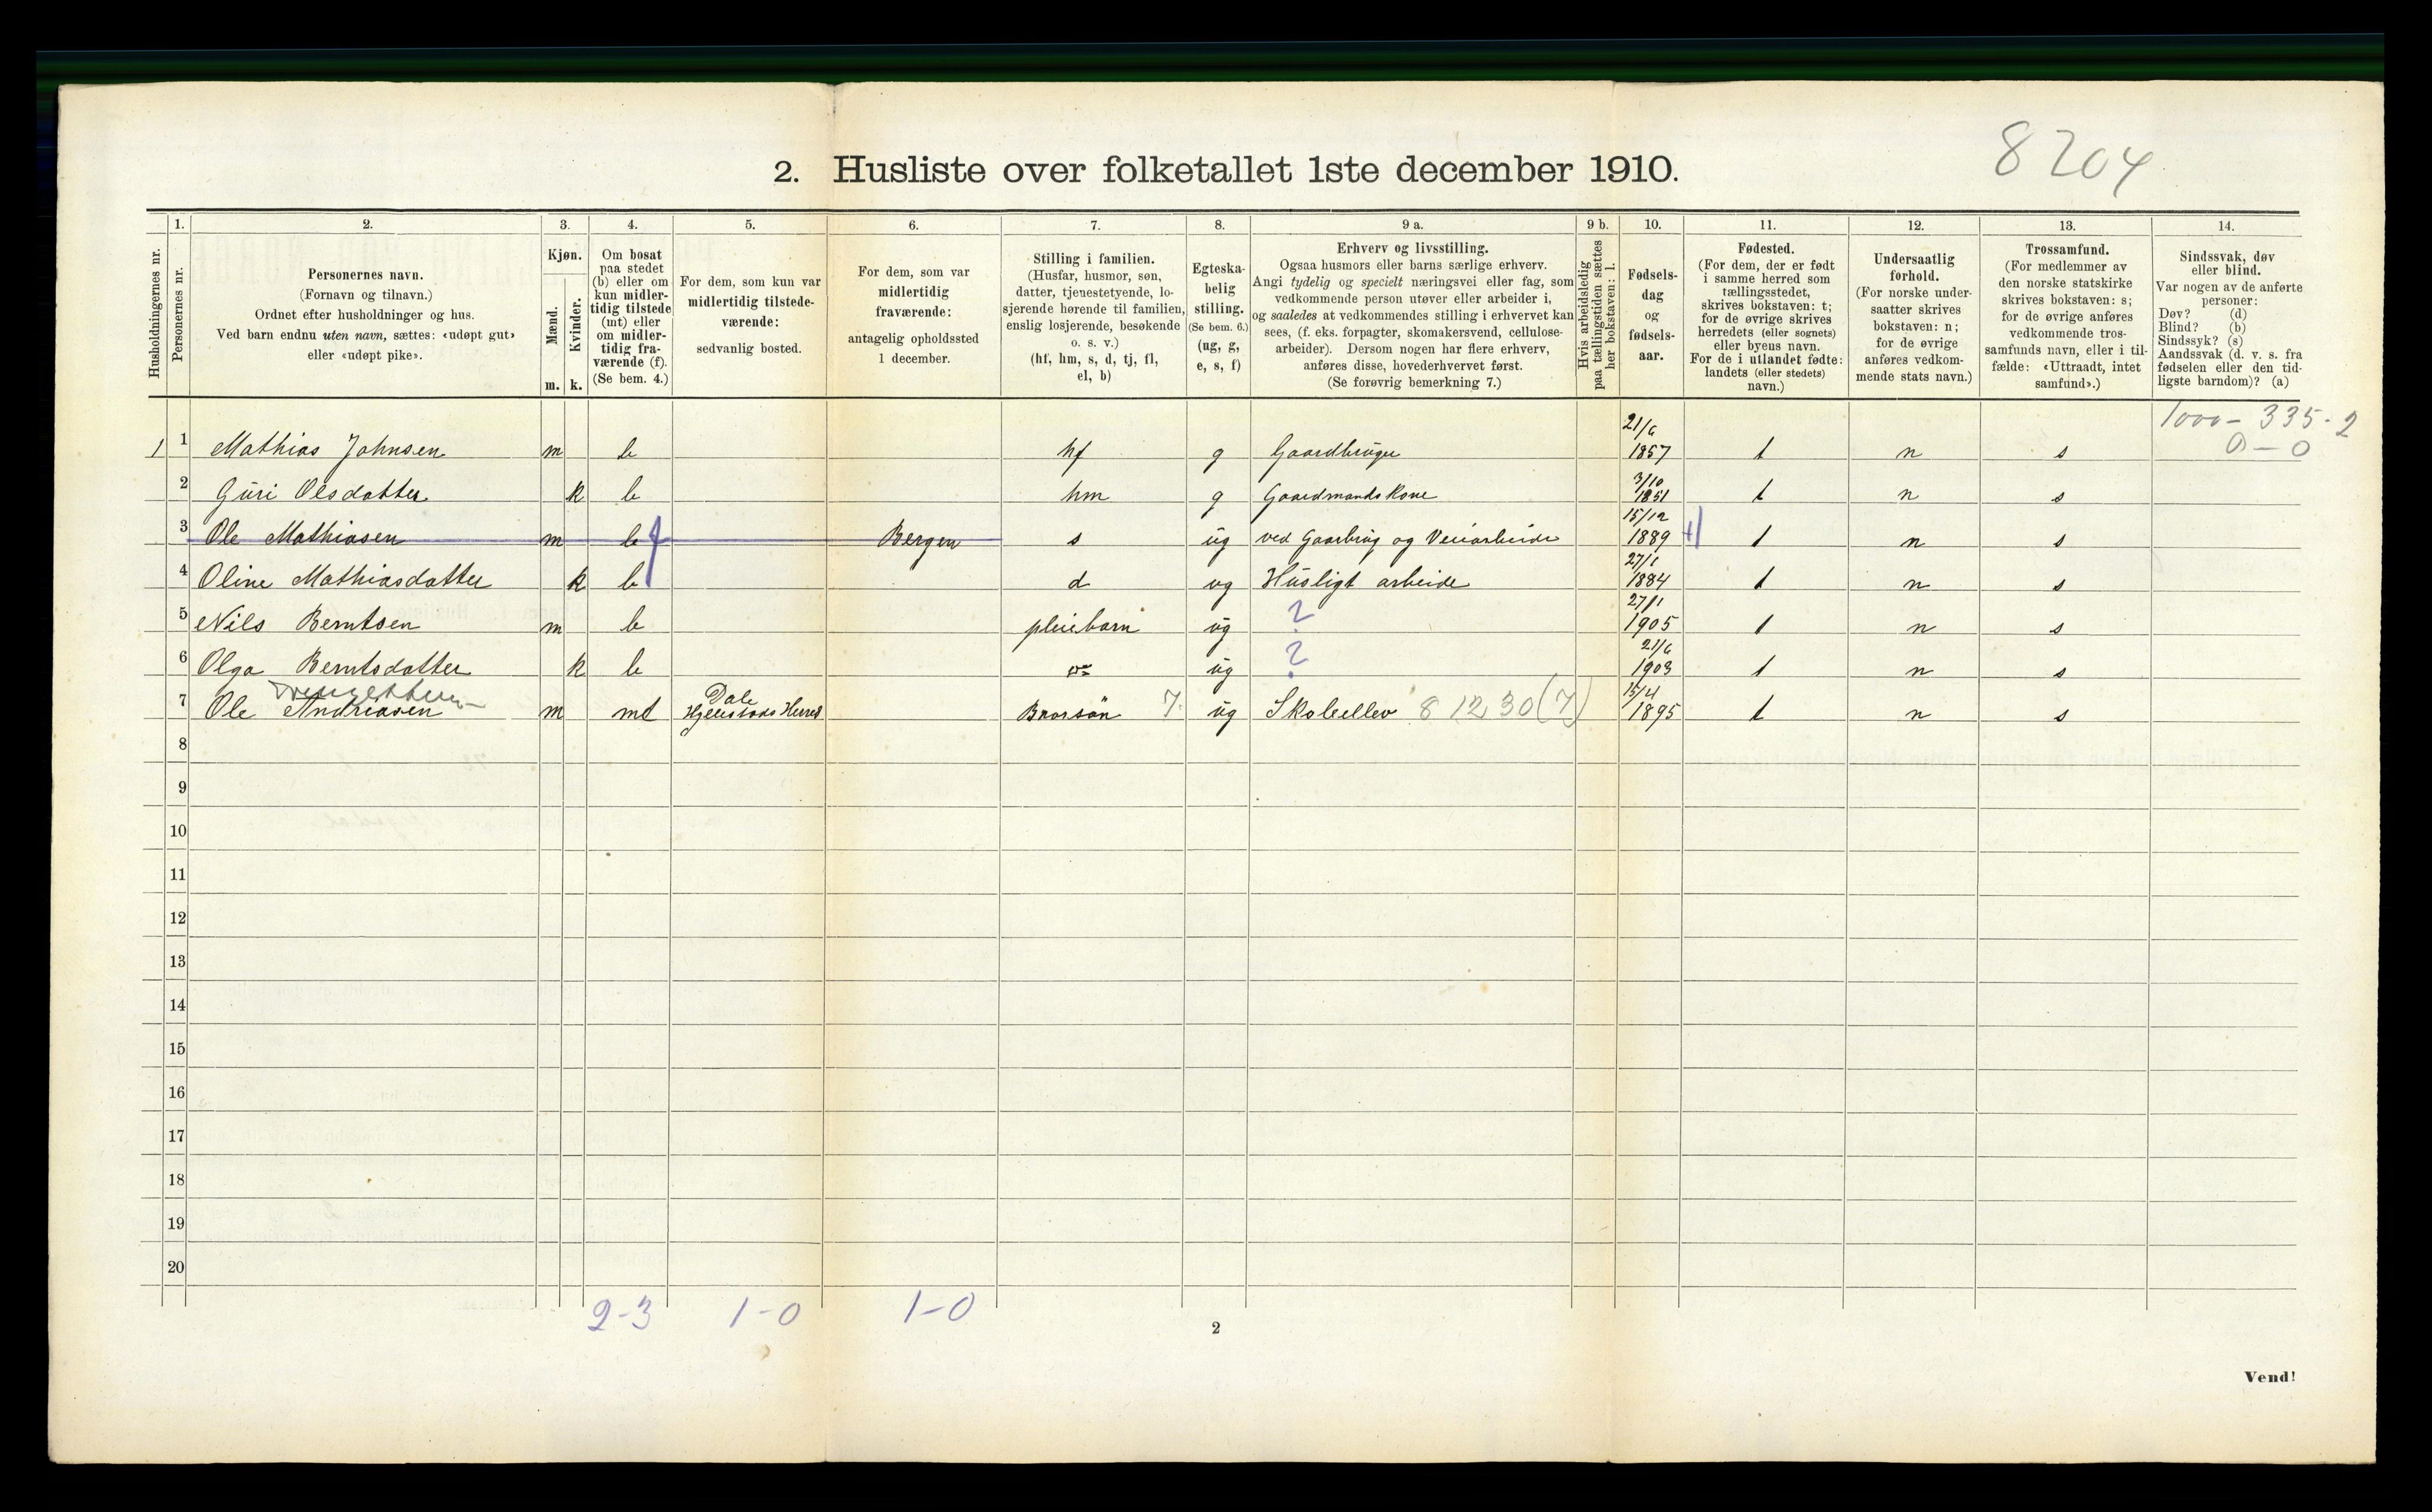 8204
2. Husliste over folketallet 1ste december 1910.
Husholdningernes nr.
1.
Personernes nr.
2.
Personernes navn.
(Fornavn og tilnavn.)
Ordnet efter husholdninger og hus.
Ved barn endnu uten navn, sættes: «udøpt gut»
eller «udøpt pike».
3.
Kjøn.
Mænd.
Kvinder.
m. k.
4.
Om bosat
paa stedet
(b) eller om
kun midler-
tidig tilstede
(mt) eller
om midler-
tidig fra-
værende (f).
(Se bem. 4.)
5.
For dem, som kun var
midlertidig tilstede-
værende:
sedvanlig bosted.
6.
For dem, som var
midlertidig
fraværende:
antagelig opholdssted
1 december.
7.
Stilling i familien.
(Husfar, husmor, søn,
datter, tjenestetyende, lo-
sjerende hørende til familien,
enslig losjerende, besøkende
o. s. v.)
(hf, hm, s, d, tj, fl,
el, b)
8.
Egteska-
belig
stilling.
(Se bem. 6.)
(ug, g,
e, s, f)
9 a.
Erhverv og livsstilling.
Ogsaa husmors eller barns særlige erhverv.
Angi tydelig og specielt næringsvei eller fag, som
vedkommende person utøver eller arbeider i,
og saaledes at vedkommendes stilling i erhvervet kan
sees, (f. eks. forpagter, skomakersvend, cellulose-
arbeider). Dersom nogen har flere erhverv,
anføres disse, hovederhvervet først.
(Se forøvrig bemerkning 7.)
9 b.
Hvis arbeidsledig
paa tællingstiden sættes
her bokstaven: l.
10.
Fødsels-
dag
og
fødsels-
aar.
11.
Fødested.
(For dem, der er født
i samme herred som
tællingsstedet,
skrives bokstaven: t;
for de øvrige skrives
herredets (eller sognets)
eller byens navn.
For de i utlandet fødte:
landets (eller stedets)
navn.)
12.
Undersaatlig
forhold.
(For norske under-
saatter skrives
bokstaven: n;
for de øvrige
anføres vedkom-
mende stats navn.)
13.
Trossamfund.
(For medlemmer av
den norske statskirke
skrives bokstaven: s;
for de øvrige anføres
vedkommende tros-
samfunds navn, eller i til-
fælde: «Uttraadt, intet
samfund».)
14.
Sindssvak, døv
eller blind.
Var nogen av de anførte
personer:
Døv? (d)
Blind? (b)
Sindssyk? (s)
Aandssvak (d. v. s. fra
fødselen eller den tid-
ligste barndom)? (a)
1000 - 335 - 2
0 - 0
1 1 Mathias Johnsen m b hf g Gaardbruger 21/6 1857 t n s
2 Guri Olsdatter k b hm g Gaardmandskone 3/10 1851 t n s
3 Ole Mathiasen m b f Bergen s ug ved Gaarbrug og Veiiarbeide 15/12 1889 t n s
4 Oline Mathiasdatter k b d ug Husligt arbeide 27/1 1884 t n s
5 Nils Berntsen m b pleiebarn ug ? 27/1 1905 t n s
6 Olga Berntsdatter k b ug ? 21/6 1903 t n s
7 Ole Andreasen m mt Dale Herred ug Skoleellev 8 12 30 (7) 15/4 1895 t n s
8
9
10
11
12
13
14
15
16
17
18
19
20
2-3 1-0 1-0
2
Vend!